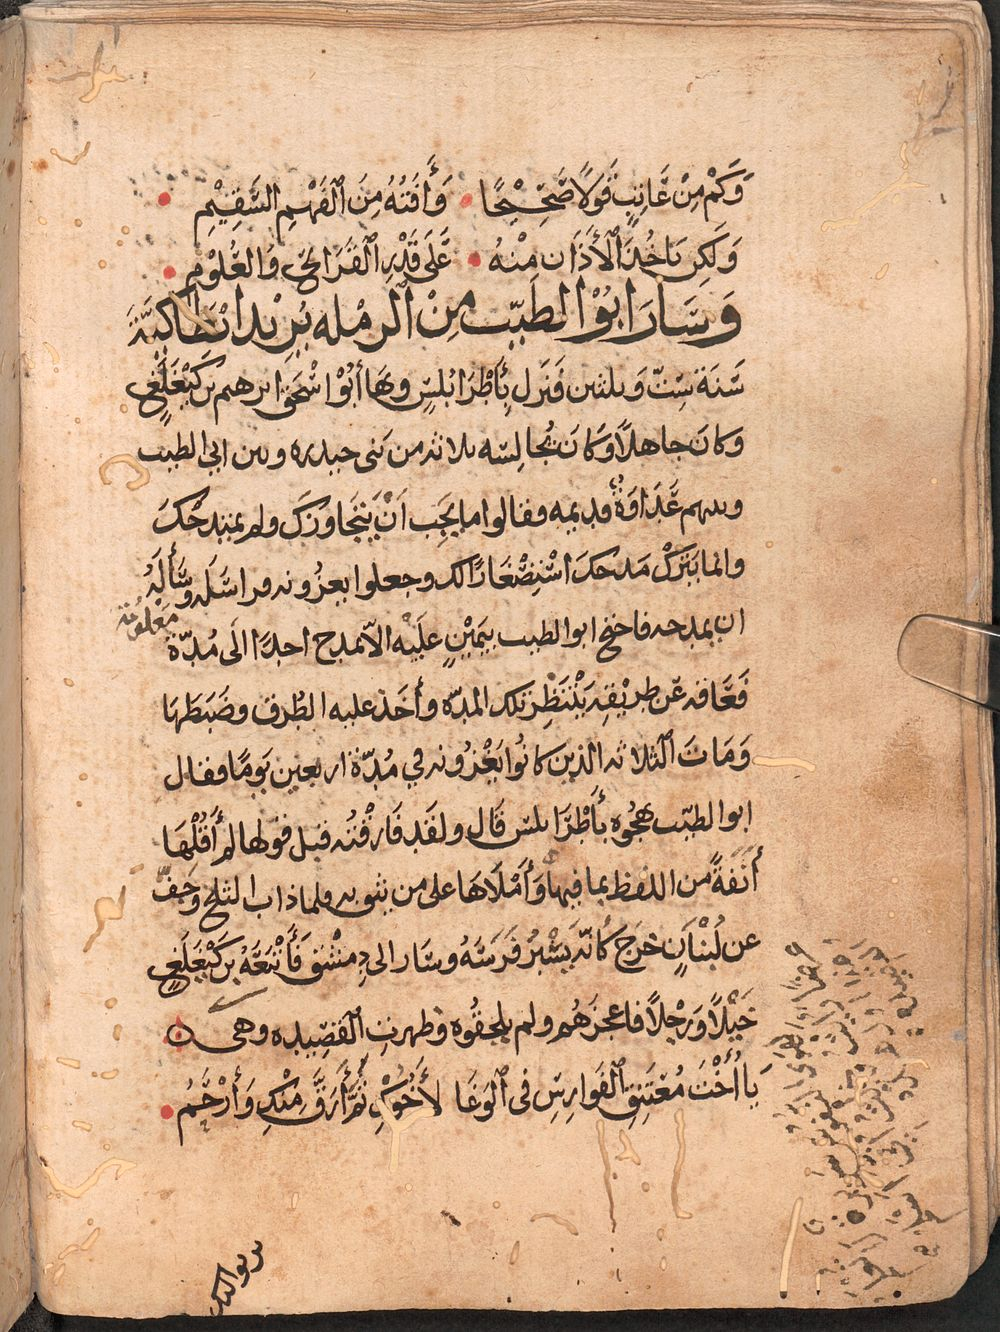 وَكَمْ مِنْ عَائِبٍ قَوْلًا صَحِيْحًا • وَأٰفَتُهُ مِنَ ٱلْفَهْمِ السَّقِيْمِ •
وَلَكِن تَاخُذُ ٱلْأٰذَان مِنْهُ • عَلَى قَدْرِ ٱلْقَرَائِحِ وَالْعُلُوْمِ •
وَسَارَ ابُوْ الطَّيِّب مِنَ ٱلرمْله يُرِيْد انطَاكِيَّةَ
سَنَة سِتّ وَثلثين فَنَزل بِأَطْرَابُلسٍ وبهَا أبُوْ اسْحٰق ابرهيم بن كَيَغْلَغٍ
وكانَ جاهلًا وَكَانَ يُجَالِسه ثلاثه من بَنى حيدره وبين ابي الطيب
وبينهم عَدَاوَة قديمه وقالوا ما يُحِب اَنْ يَتَجَاوَزَكَ ولم يَمتدحْكَ
وانما يَتركْ مَدحكَ اسْتِصْغَارًا لك وجعلوا يغرُونه فراسَله وسَأَلَهُ
ان يمدحه فاحتج ابو الطيب بيَمِيْنٍ عليَْه الّا يمدح احدًا الَى مُدّة مَعْلُومة
فَعَاقه عَن طريْقِه يَنْتَظِر تلك المدّه وأخَذ عليه الطُرق وضَبَطَهَا
وَمَاتَ ٱلثلاثه الذين كانُوا يَغْرُونه في مُدّة اربعين يَومًا فقال
ابو الطيّب يهجُوه بأَطْرَابلس قَالَ ولقد فَارقْتُه قبل قولها لم أَقُلْهَا
أَنَفَةً من اللفظ بما فيها وَأَمْلَاهَا على من يثق به فلما ذاب الثلج وَخَفَّ
عن لُبْنانٍ خرَجَ كأنّه يُسَيِّرُ فَرَسَهُ وسَار الى دِمَشْق فَأَتْبَعَهُ بن كَيَغْلَغٍ
خَيْلًا وَرَجْلًا فاعجزَهُم ولم يلحقُوه وظهرت ٱلقصِيده وهى ن
يَا أُخْتَ مُعْتَنِقِ ٱلفَوارِسِ فى ٱلوَغَا لَأَخُوْكِ ثَمَّ أَرَقُّ مِنْكِ وَأَرْحَمُ •